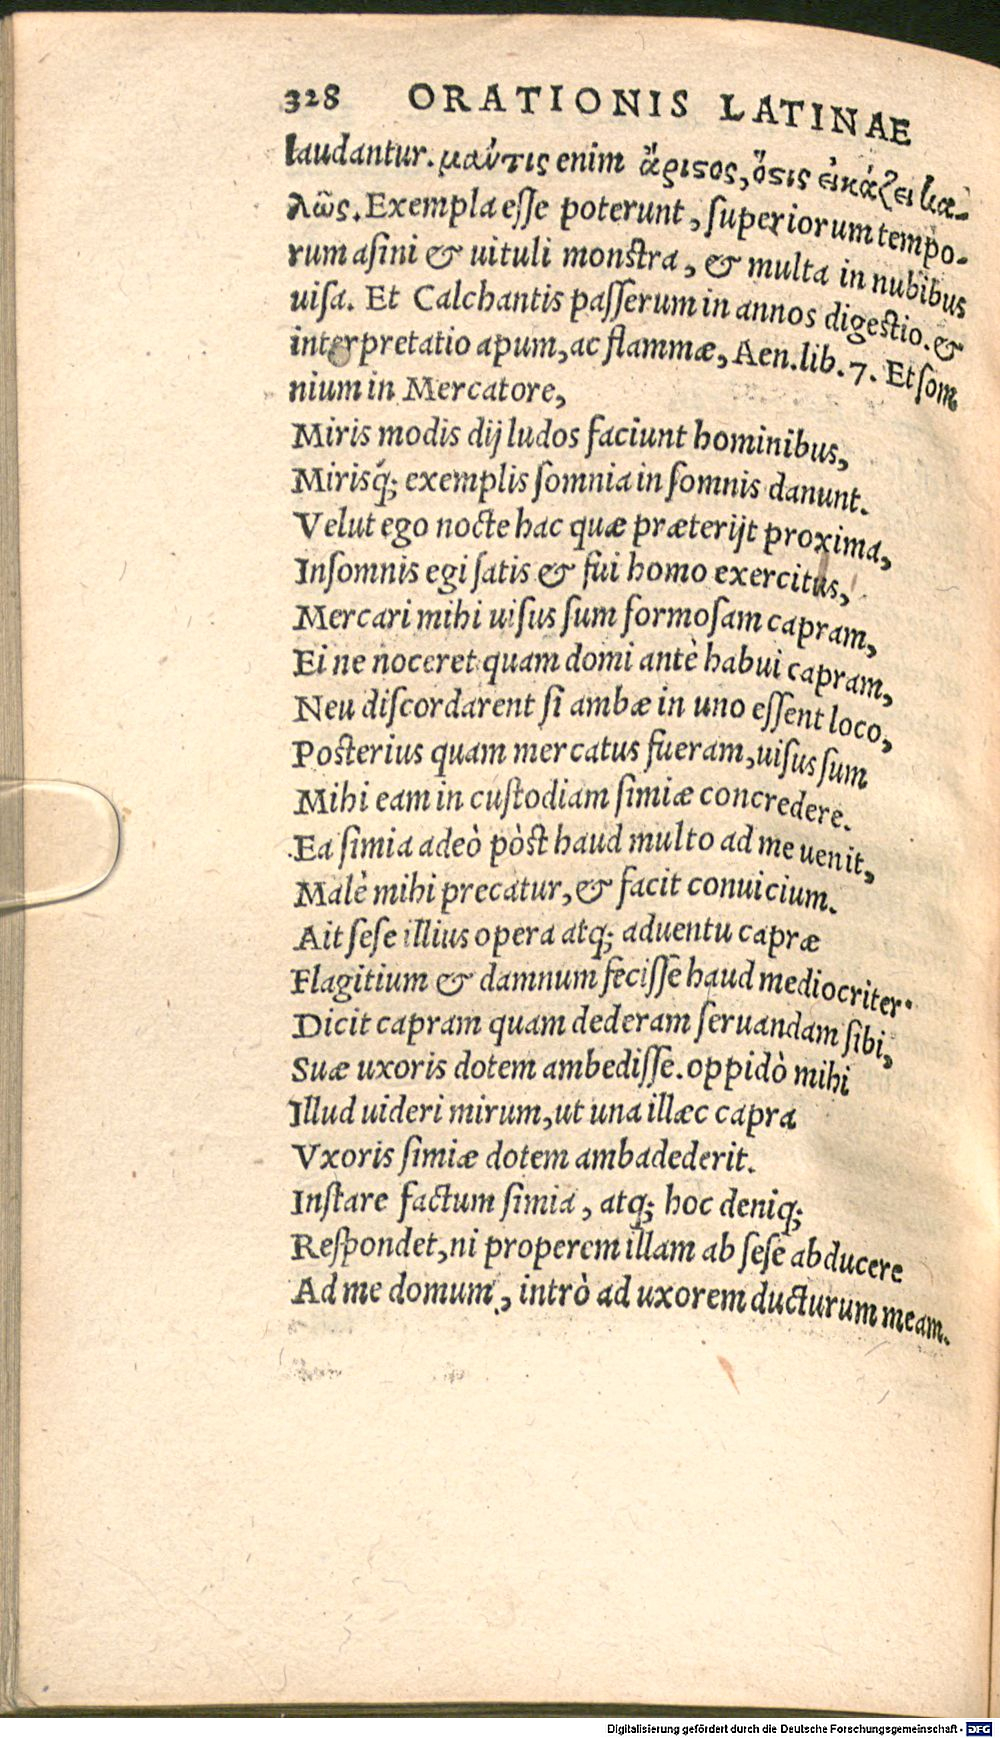 328 ORATIONIS LATINAE
laudantur. μαύτις enim ἄριςος, ὅςις εἰκάζει κα-
λῶς. Exempla eſſe poterunt, ſuperiorum tempo-
rum aſini & uituli monſtra, & multa in nubibus
uiſa. Et Calchantis paſſerum in annos digeſtio. &
interpretatio apum, ac flammæ, Aen. lib. 7. Et ſom
nium in Mercatore,
Miris modis dij ludos faciunt hominibus,
Mirisq́; exemplis ſomnia in ſomnis danunt.
Velut ego nocte hac quæ præterijt proxima,
Inſomnis egi ſatis & fui homo exercitus,
Mercari mihi uiſus ſum formoſam capram,
Ei ne noceret quam domi antè habui capram,
Neu diſcordarent ſi ambæ in uno eſſent loco,
Poſterius quam mercatus fueram, uiſus ſum
Mihi eam in cuſtodiam ſimiæ concredere.
Ea ſimia adeò pòſt haud multo ad me uenit,
Malè mihi precatur, & facit conuicium.
Ait ſeſe illius opera atq; aduentu capræ
Flagitium & damnum feciſſe haud mediocriter.
Dicit capram quam dederam ſeruandam ſibi,
Suæ uxoris dotem ambediſſe. oppidò mihi
Illud uideri mirum, ut una illæc capra
Vxoris ſimiæ dotem ambadederit.
Inſtare factum ſimia, atq; hoc deniq;
Reſpondet, ni properem illam ab ſeſe abducere
Ad me domum, intrò ad uxorem ducturum meam.
Digitalisierung gefördert durch die Deutsche Forschungsgemeinschaft - DFG